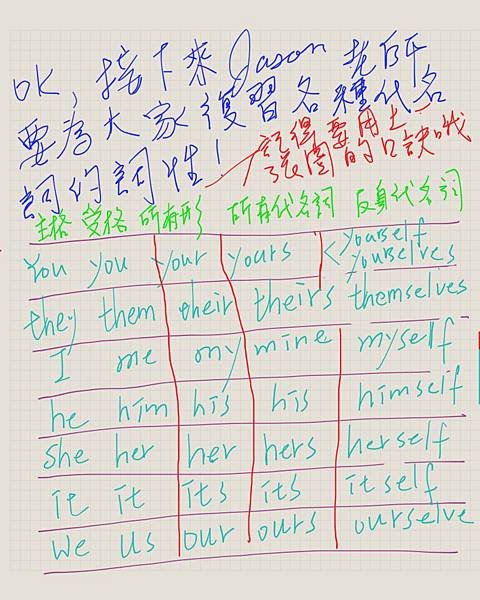 OK, 接下來Jason 老師
要為大家復習各種代名
詞的詞性!
記得要用上一
張圖的口訣哦
主格 受格 所有形 所有代名詞 反身代名詞
You you your yours < yourself
yourselves
they them their theirs themselves
I me my mine myself
he him his his himself
she her her hers herself
it it its its itself
we us our ours ourselve